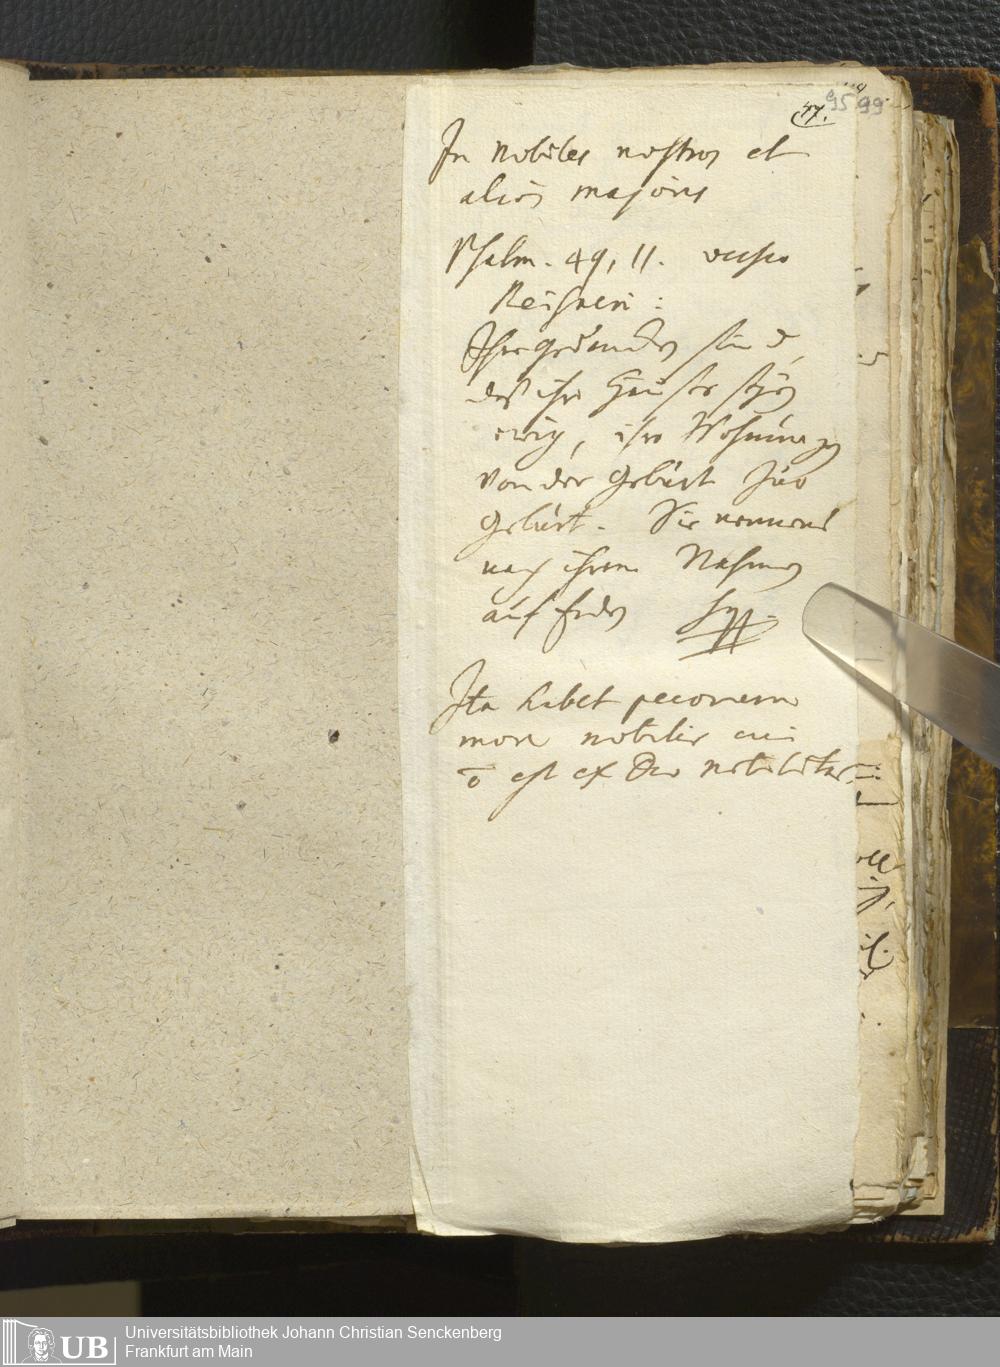 47. 95 99
In Nobiles nostros et
alios majores
Psalm. 49, 11. versio
Reisneri:
Ihr gedancke sind,
daß ihre Häuser seyen
ewig, ihre Wohnungen
von der Geburt zur
Geburt. Sie nennens
nach ihrem Nahmen
auf Erden
Ita habet
more nobilis cui
ō est ex Deo nobilitas.
UB
Universitätsbibliothek Johann Christian Senckenberg
Frankfurt am Main